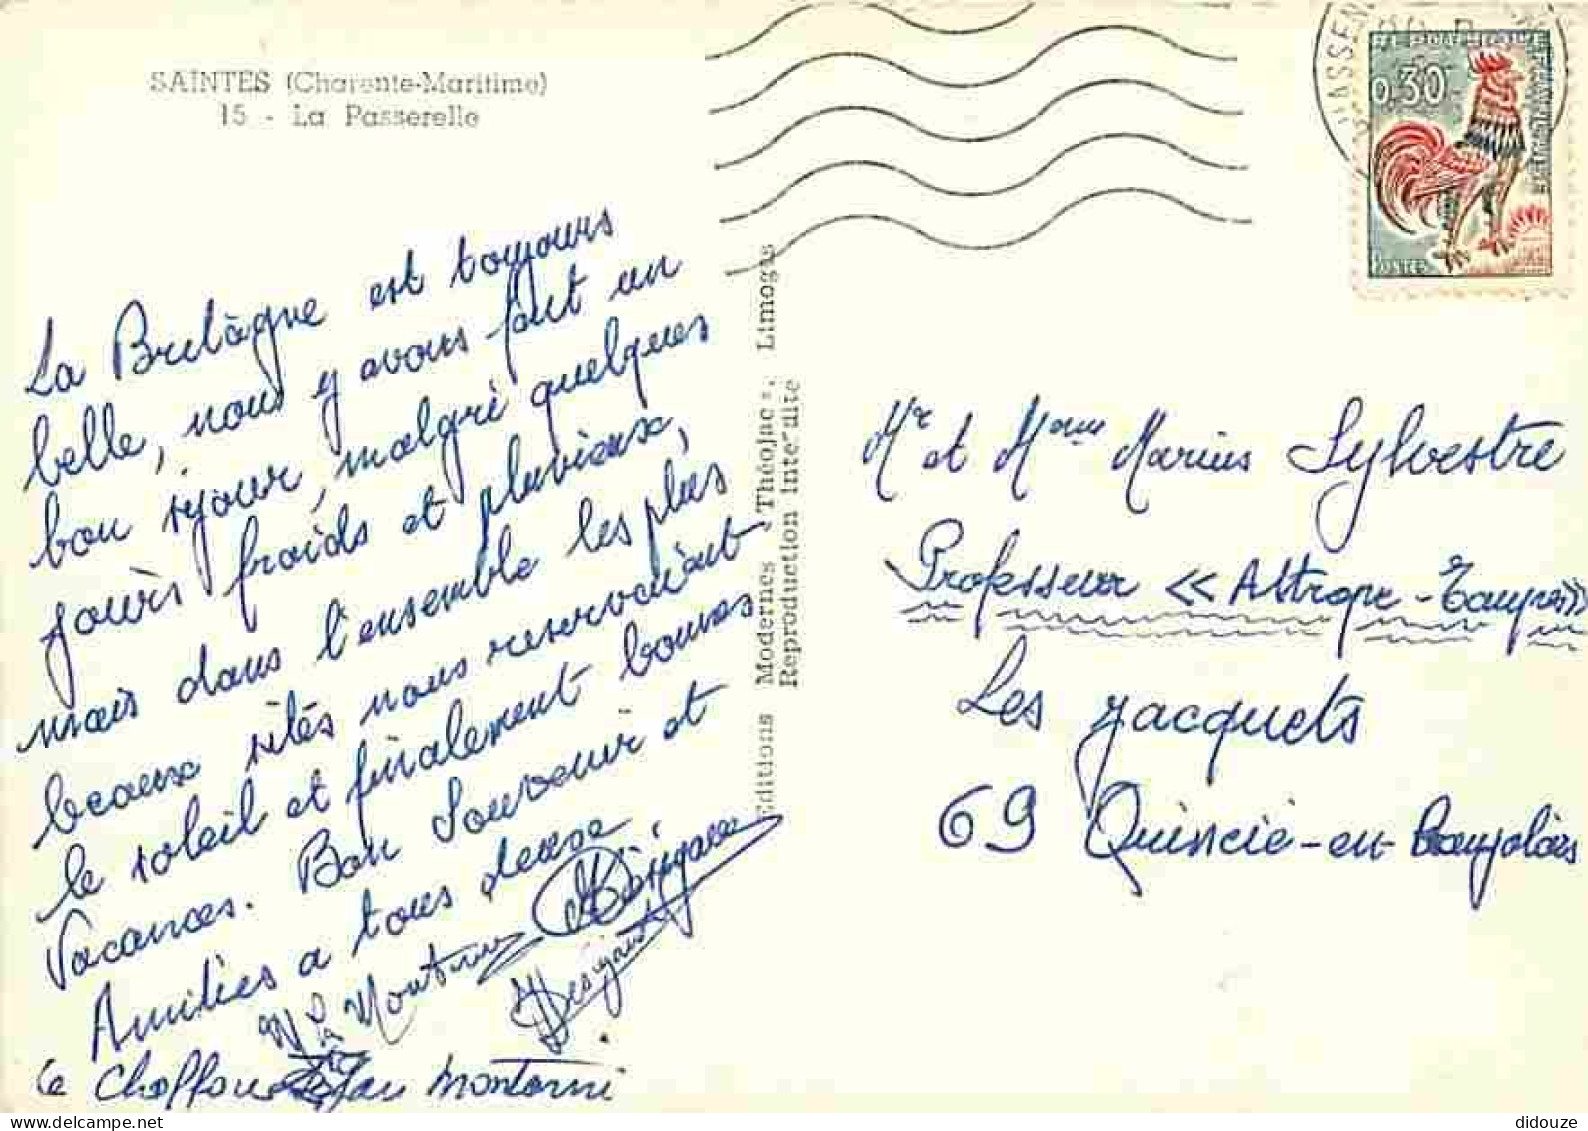 SAINTES (Charente-Maritime)
15 - La Passerelle
La Bretagne est toujours
belle, nous y avons fait un
bon séjour, malgré quelques
jours froids et pluvieux,
mais dans l'ensemble les plus
beaux sites nous réservaient
le soleil et finalement bonnes
vacances. Bon Souvenir et
Amitiés a tous deux
Le Chaffour
Editions Modernes "Théojac", Limoges
Reproduction Interdite
0,30
POSTES
Mr et Mme Marius Sylvestre
Professeur « Attrope-Taupes »
Les Jacquets
69 Quincié-en-Beaujolais
didouze